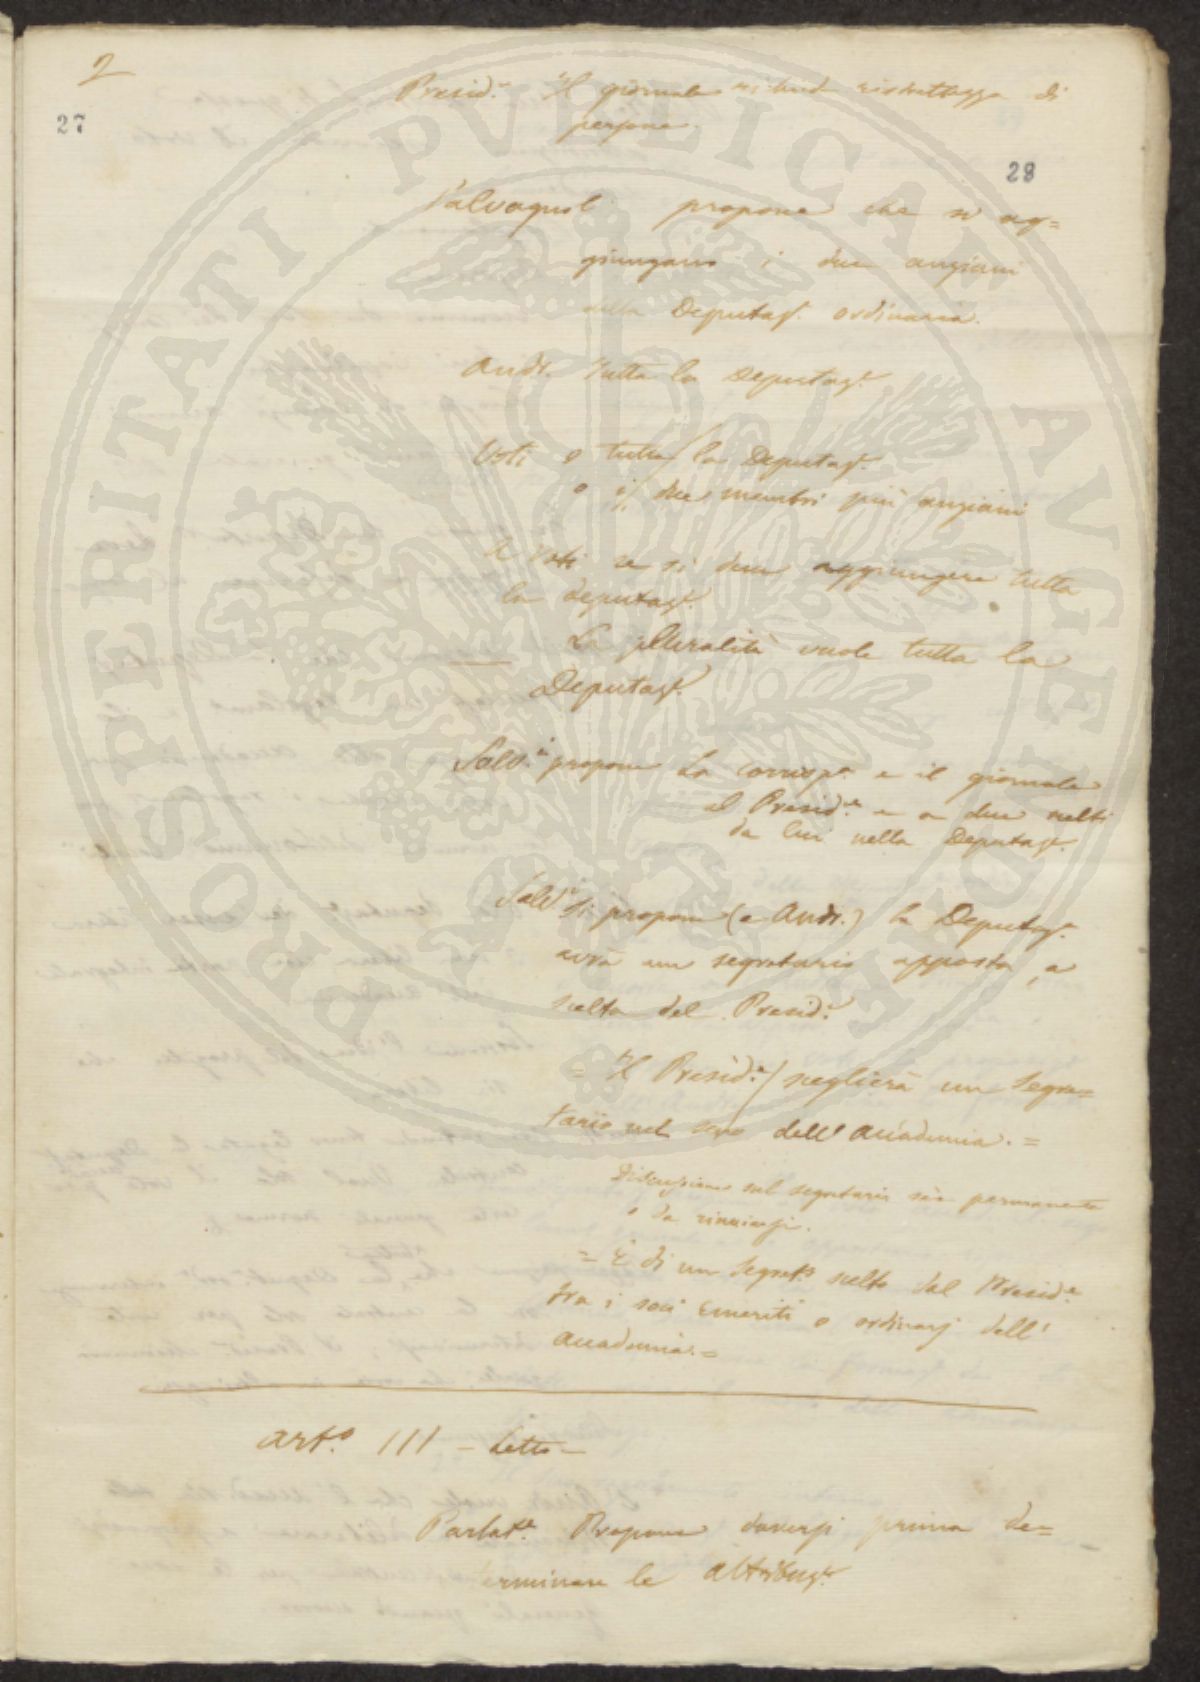 2
27
Presid.e Il giornale richiede ristrettezza di
persone.
28
Salvagnoli propone che si ag=
giungano i due anziani
della Deputaz.e ordinaria.
Andr. tutta la Deputaz.e
Voti o tutta la Deputaz.e
o i due membri più anziani
A voti se si deve aggiungere tutta
la deputaz.e
La pluralità vuole tutta la
Deputaz.e
Salv.i propone La corrisp.a e il giornale
al Presid.e e a due scelti
da lui nella Deputaz.e
Salv.i Si propone (e Andr.) la Deputaz.e
avrà un segretario apposta, a
scelta del Presid.e
= Il Presid.e sceglierà un Segre=
tario nel seno dell'Accademia. =
Discussione sul segretario sia permanente
o da rinnovarsi.
= E di un Segret.o scelto dal Presid.e
tra i soci Emeriti o ordinarj dell'
Accademia. =
Art.o III - Letto -
Parlat.e Propone doversi prima de=
terminare le attribuz.i
PROSPERITATI PVBLICAE AVGENDAE